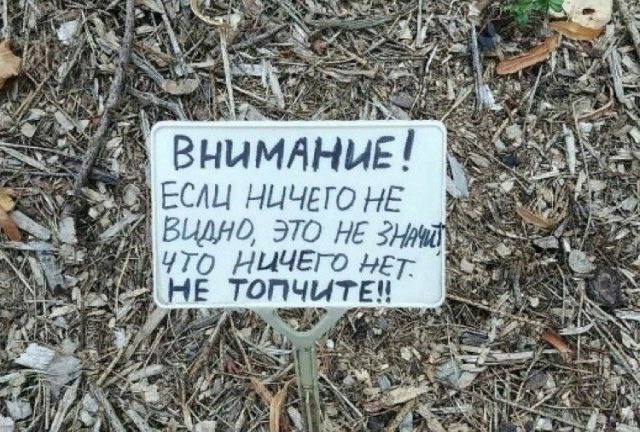 ВНИМАНИЕ!
ЕСЛИ НИЧЕГО НЕ
ВИДНО, ЭТО НЕ ЗНАЧИТ,
ЧТО НИЧЕГО НЕТ.
НЕ ТОПЧИТЕ!!